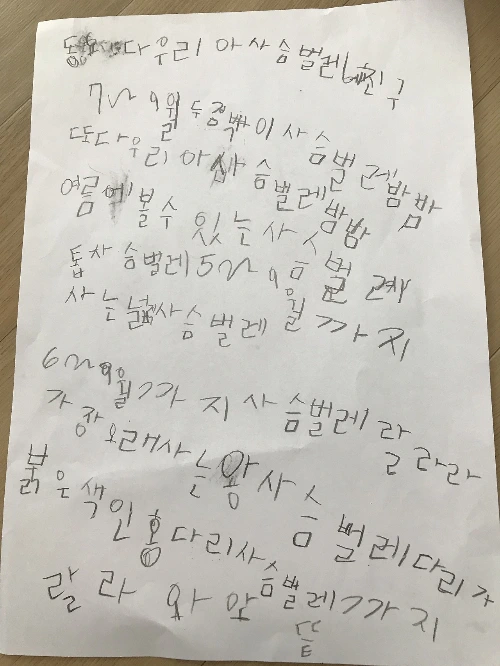 다우리아사슴벌레친구
7~9월두점박이사슴벌레밤밤
또다우리아사슴벌레밤밤
여름에볼수있는사슴벌레
톱사슴벌레5~9월까지
사는넓적사슴벌레
6~9월까지사슴벌레랄라라
가장오래사는왕사슴벌레다리가
붉은색인홍다리사슴벌레까지
랄라와